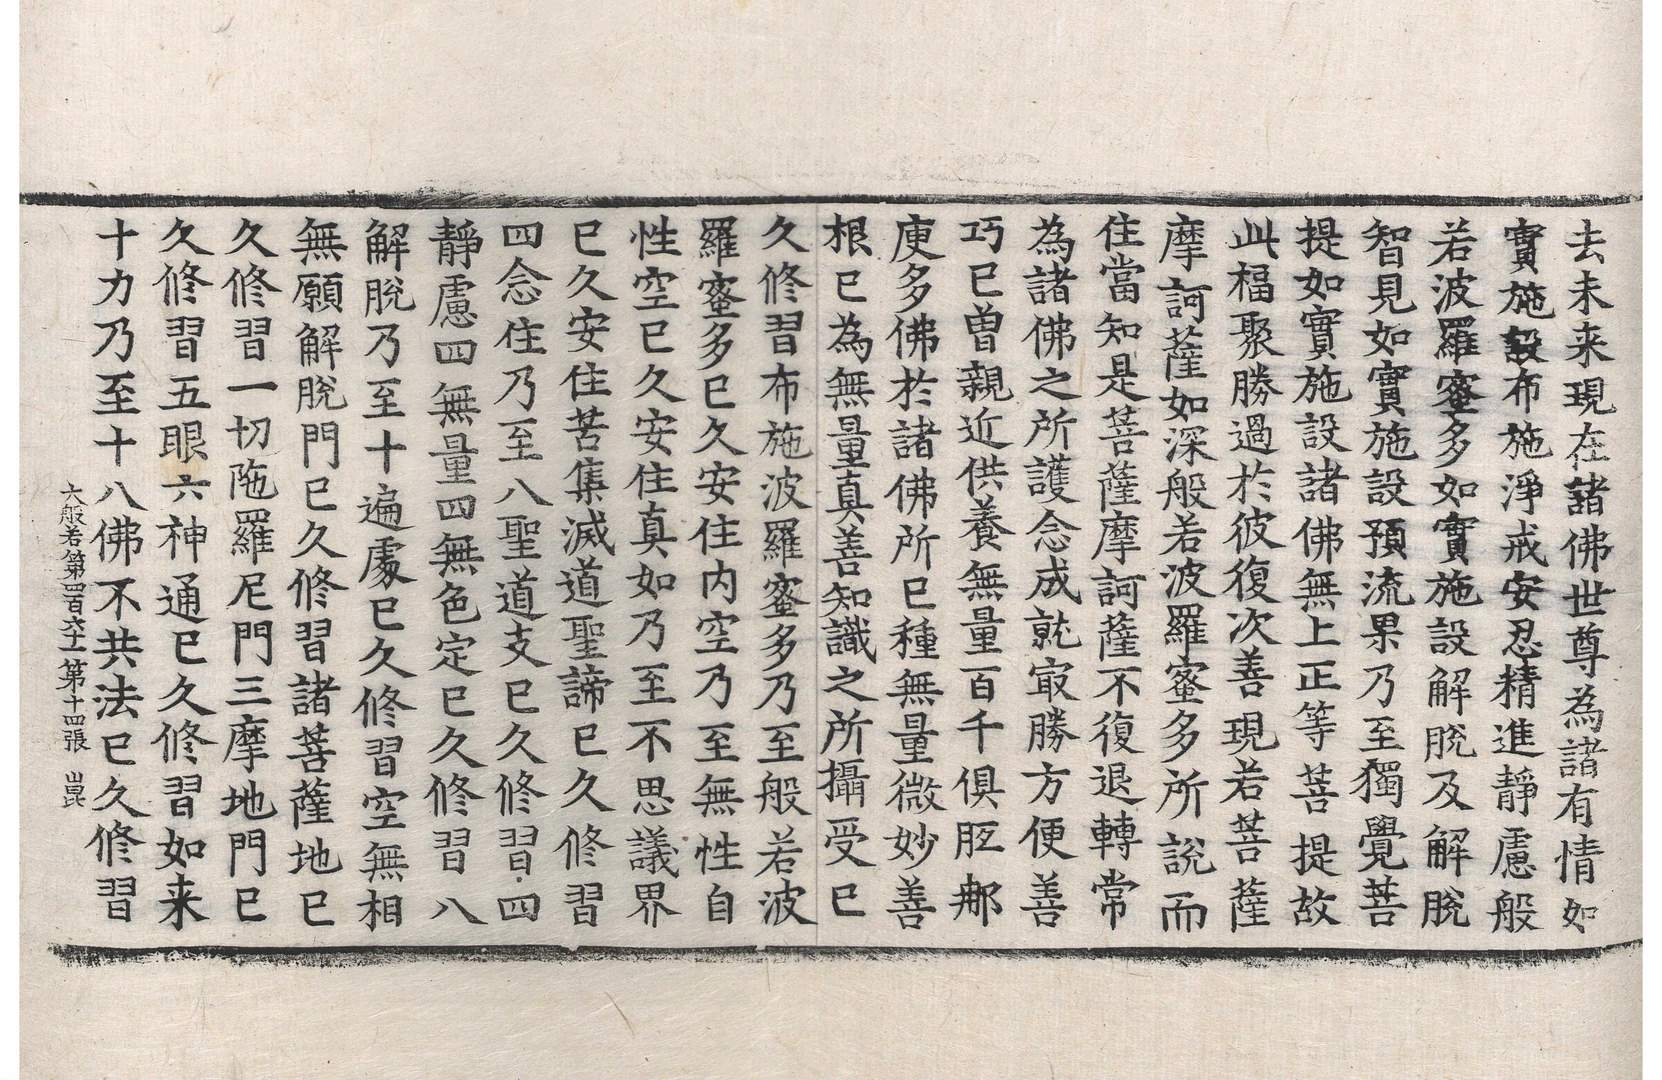 去未来現在諸佛世尊為諸有情如
實施設布施淨戒安忍精進靜慮般
若波羅蜜多如實施設解脫及解脫
智見如實施設預流果乃至獨覺菩
提如實施設諸佛無上正等菩提故
此福聚勝過於彼復次善現若菩薩
摩訶薩如深般若波羅蜜多所說而
住當知是菩薩摩訶薩不復退轉常
為諸佛之所護念成就㝡勝方便善
巧已曾親近供養無量百千俱胝那
庾多佛於諸佛所已種無量微妙善
根已為無量真善知識之所攝受已
久修習布施波羅蜜多乃至般若波
羅蜜多已久安住内空乃至無性自
性空已久安住真如乃至不思議界
已久安住苦集滅道聖諦已久修習
四念住乃至八聖道支已久修習四
靜慮四無量四無色定已久修習八
解脫乃至十遍處已久修習空無相
無願解脫門已久修習諸菩薩地已
久修習一切陁羅尼門三摩地門已
久修習五眼六神通已久修習如来
十力乃至十八佛不共法已久修習
大般若第四百六十 第十四張 崑